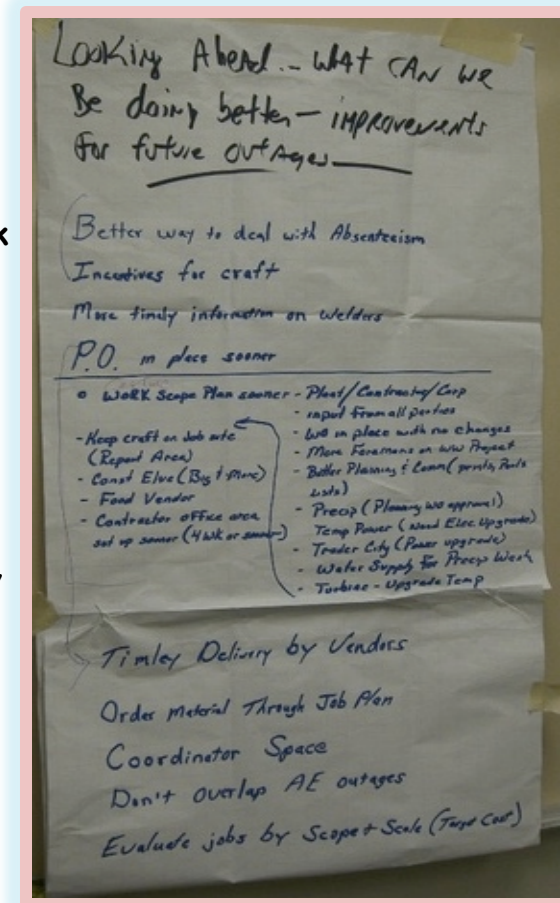 Looking Ahead -- What CAN we
Be doing better - improvements
for future outages
Better way to deal with Absenteeism
Incentives for craft
More timely information on Welders
P.O. in place sooner
o WORK Scope Plan sooner - Plant/Contractor/Corp
- input from all parties
- WO in place with no changes
- More Foremans on WW Project
- Better Planning & Comm (prints, Parts
Lists)
- Precip (Planning WO approval)
Temp Power (Need Elec Upgrade)
- Trader City (Power upgrade)
- Water Supply for Precip Wash
- Turbine - Upgrade Temp
- Keep craft on Job site
(Report Area)
- Const Elve (Big & More)
- Food Vendor
- Contractor office area
set up sooner (4 WK or sooner)
Timley Delivery by Vendors
Order Material Through Job Plan
Coordinator Space
Don't overlap AE outages
Evaluate jobs by Scope + Scale (Target Cost)